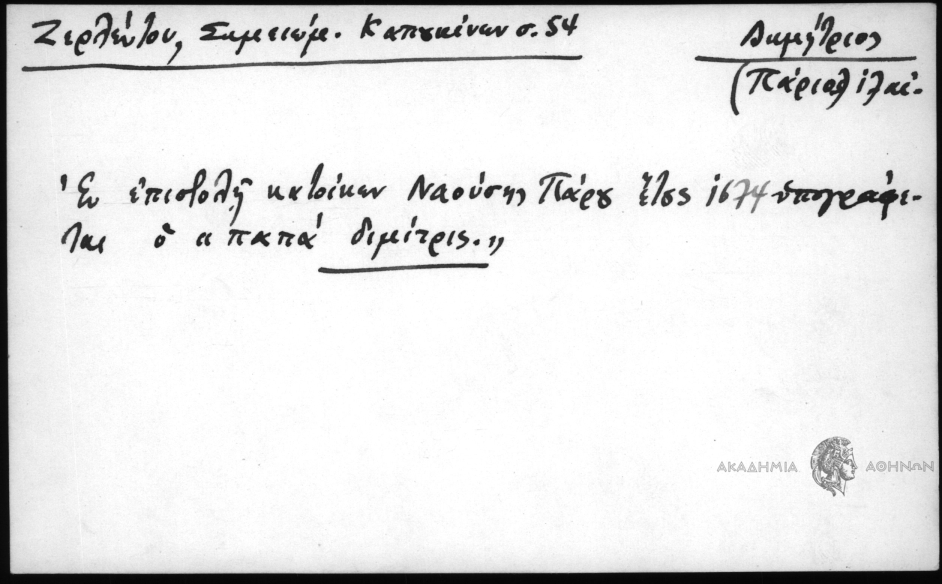 Ζερλέντου, Σημειώμ. Καπουκίνων σ. 54
Δημήτριος
(Πάριος ἱλαι.
Ἐν ἐπιστολῇ κατοίκων Ναούσης Πάρου ἔτους 1674 ὑπογράφε-
ται ὁ «παπά διμίτρις.»
ΑΚΑΔΗΜΙΑ ΑΘΗΝΩΝ